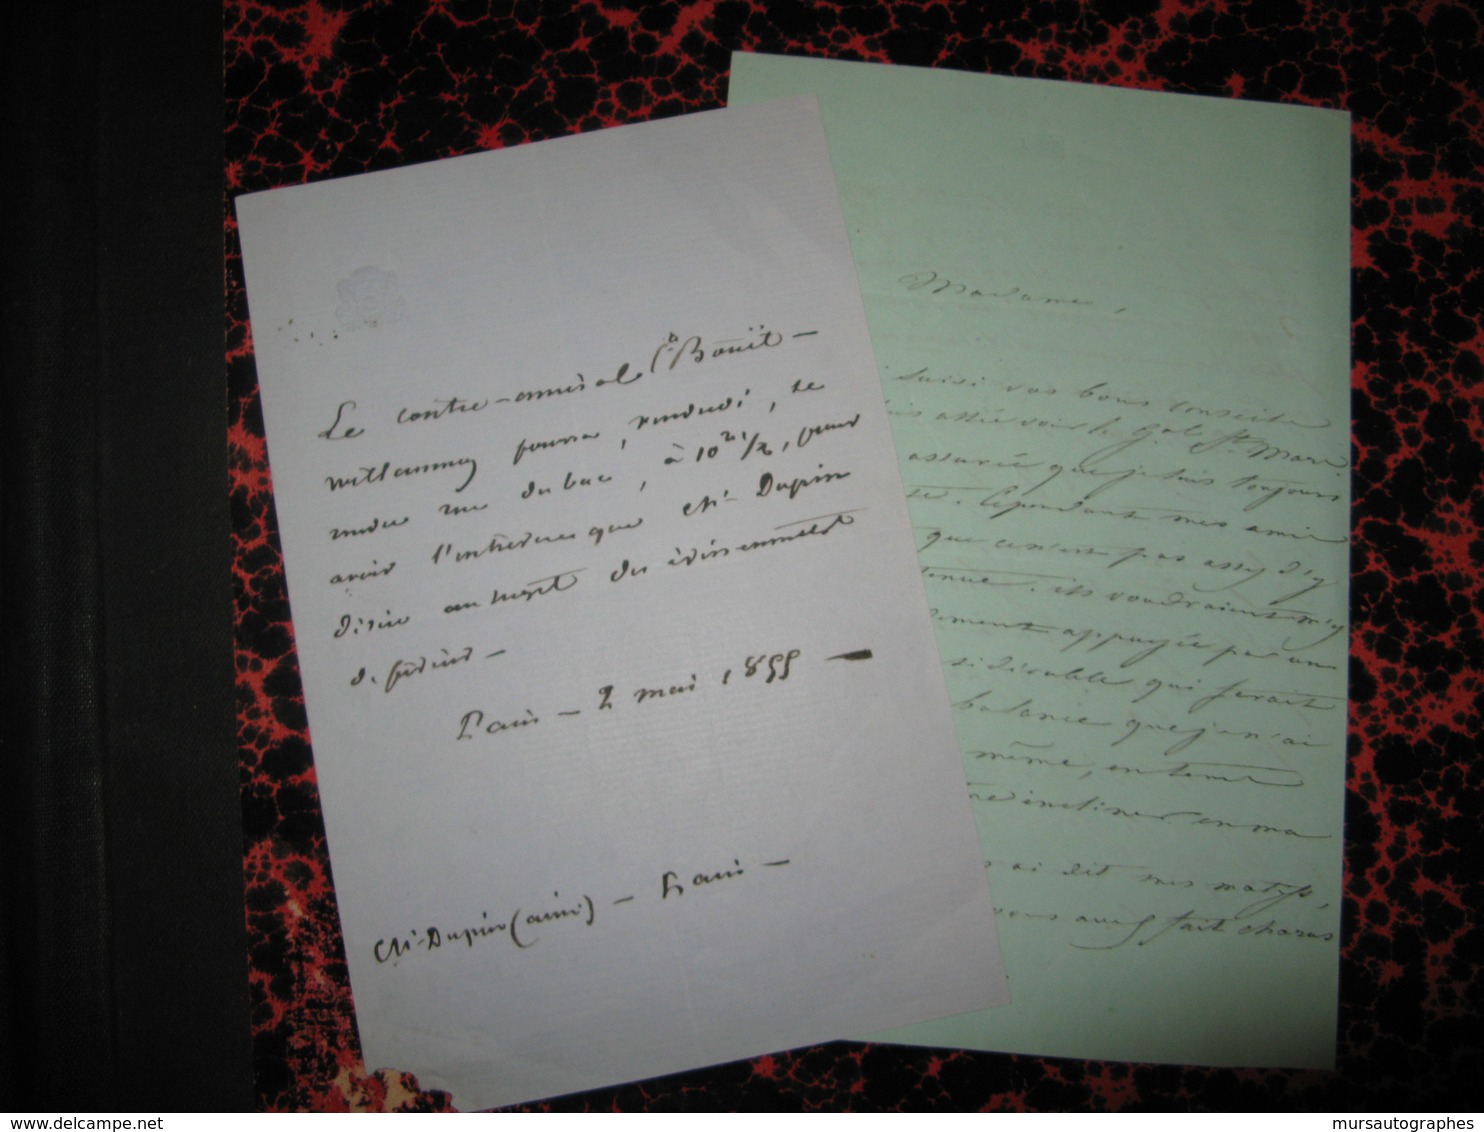 Le contre-amiral Cte Bouët-
Willaumez pourra, vendredi, se
rendre rue du bac, à 10h 1/2, pour
avoir l'entrevue que Mr Dupin
désire au sujet des évènements
de
Paris - 2 mai 1855 -
Mr Dupin (ainé) - Paris -
Madame,
suivi vos bons conseils
allée voir le Gal St. Mar
assurée que je suis toujours
Cependant mes amis
que ce n'est pas assez d'y
tenue. ils voudraient m'y
ement appuyée par un
sidérable qui ferait
balance que je n'ai
même, en tenu
incliner en ma
ai dit mes motifs,
vous avez fait
delcampe.net
mursautographes